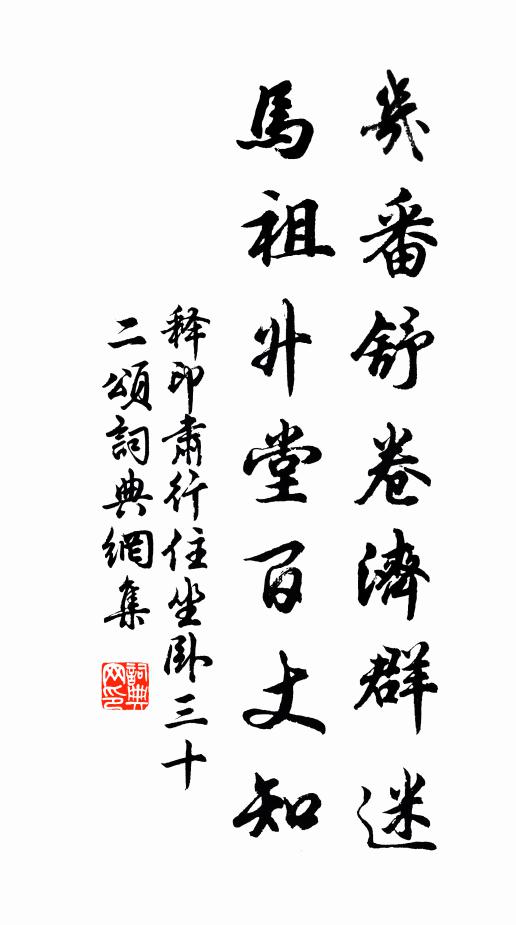 幾番舒卷濟群迷
馬祖升堂百丈知
释印肅行住坐卧三十
二頌詞典網集
詞典网印